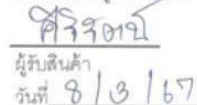 ศิริรัตน์
ผู้รับสินค้า
วันที่ 8/3/67